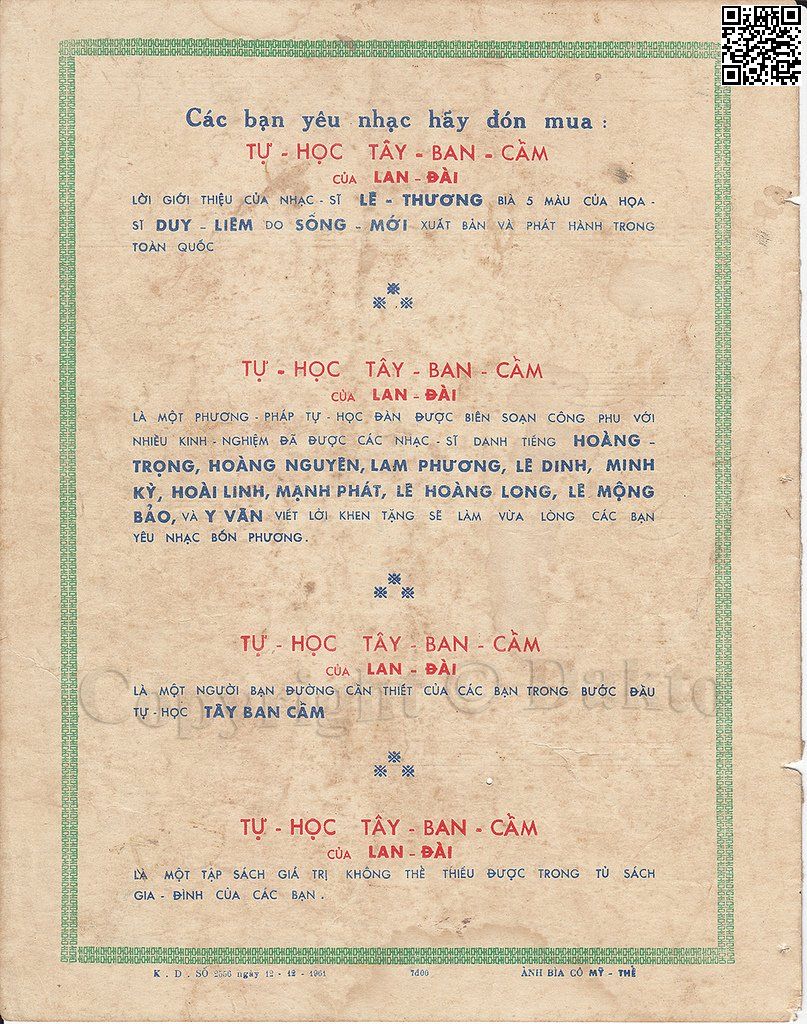 Các bạn yêu nhạc hãy đón mua :
TỰ - HỌC TÂY - BAN - CẦM
CỦA LAN - ĐÀI
LỜI GIỚI THIỆU CỦA NHẠC - SĨ LÊ - THƯƠNG BIÀ 5 MÀU CỦA HỌA -
SĨ DUY - LIÊM DO SỐNG - MỚI XUẤT BẢN VÀ PHÁT HÀNH TRONG
TOÀN QUỐC
TỰ - HỌC TÂY - BAN - CẦM
CỦA LAN - ĐÀI
LÀ MỘT PHƯƠNG - PHÁP TỰ - HỌC ĐÀN ĐƯỢC BIÊN SOẠN CÔNG PHU VỚI
NHIỀU KINH - NGHIỆM ĐÃ ĐƯỢC CÁC NHẠC - SĨ DANH TIẾNG HOÀNG -
TRỌNG, HOÀNG NGUYÊN, LAM PHƯƠNG, LÊ DINH, MINH
KỲ, HOÀI LINH, MẠNH PHÁT, LÊ HOÀNG LONG, LÊ MỘNG
BẢO, VÀ Y VÂN VIẾT LỜI KHEN TẶNG SẼ LÀM VỪA LÒNG CÁC BẠN
YÊU NHẠC BỐN PHƯƠNG .
TỰ - HỌC TÂY - BAN - CẦM
CỦA LAN - ĐÀI
LÀ MỘT NGƯỜI BẠN ĐƯỜNG CẦN THIẾT CỦA CÁC BẠN TRONG BƯỚC ĐẦU
TỰ - HỌC TÂY BAN CẦM
Copyright © Dakto
TỰ - HỌC TÂY - BAN - CẦM
CỦA LAN - ĐÀI
LÀ MỘT TẬP SÁCH GIÁ TRỊ KHÔNG THỂ THIẾU ĐƯỢC TRONG TỦ SÁCH
GIA - ĐÌNH CỦA CÁC BẠN .
K . D . SỐ 2556 ngày 12 - 12 - 1961 7d00 ẢNH BÌA CÔ MỸ - THỂ